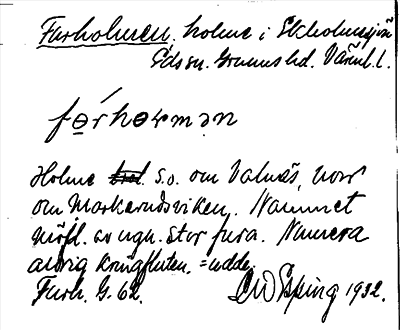 Furholmen. holme i Ekholmssjön
Eds sn. Grums hd. Värml. l.
fɵ́rhoɽmən
Holme s.o. om Valnäs, norr
om Markerudsviken. Namnet
möjl. av ngn. stor fura. Numera
aldrig kringfluten. = udde.
Furh. G. 62. Esping 1932.